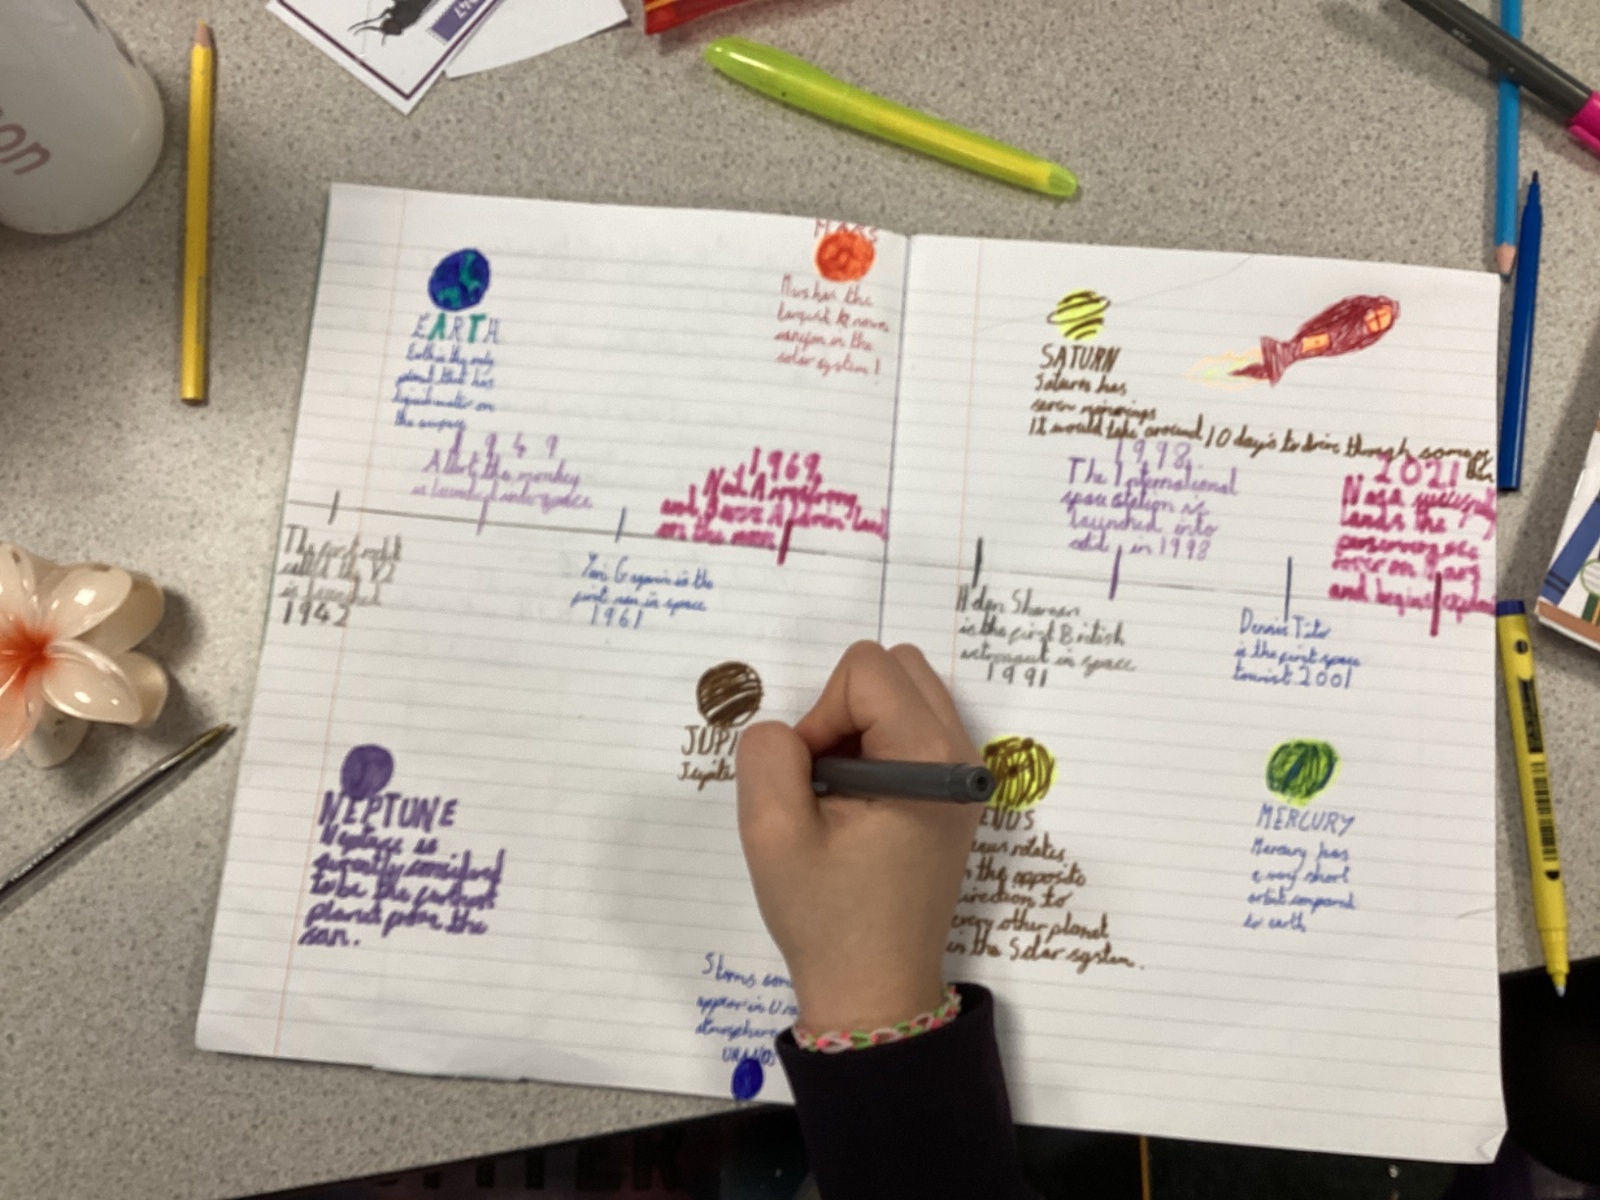 on
EARTH
Earth is the only
planet that has
liquid water on
the surface
MARS
Mars has the
largest known
canyon in the
solar system!
SATURN
Saturn has
seven main rings
It would take around 10 days to drive through some of
1949
Albert the monkey
is launched into space
1969
Neil Armstrong
and Buzz Aldrin land
on the moon
1998
The International
space station is
launched into
in 1998
2021
Nasa successfully
lands the
rover on Mars
and begins
The first rocket
called the V2
is launched
1942
Yuri Gagarin is the
first man in space
1961
Helen Sharman
is the first British
astronaut in space
1991
Dennis Tito
is the first space
tourist 2001
JUPI
Jupiter
NEPTUNE
Neptune is
currently considered
to be the furthest
planet from the
sun.
ENUS
enus rotates
the opposite
irection to
every other planet
in the Solar system.
MERCURY
Mercury has
a very short
orbit compared
to earth
Storms
appear in
atmosphere
URANUS